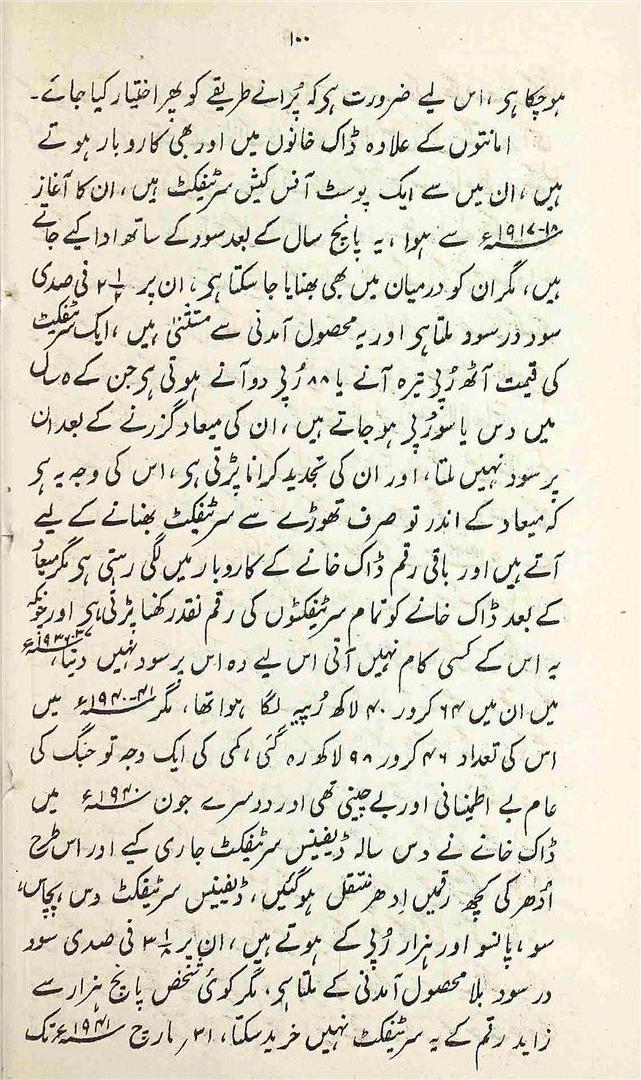 ۱۰۰
ہوچکا ہی، اس لیے ضرورت ہی کہ پُرانے طریقے کو پھر اختیار کیا جائے۔
امانتوں کے علاوہ ڈاک خانوں میں اور بھی کاروبار ہوتے
ہیں، ان میں سے ایک پوسٹ آفس کیش سرٹیفکٹ ہیں، ان کا آغاز
۱۸-۱۹۱۷ء سے ہوا، یہ پانچ سال کے بعد سود کے ساتھ ادا کیے جاتے
ہیں، مگر ان کو درمیان میں بھی بھنایا جا سکتا ہی، ان پر ۲½ فی صدی
سود در سود ملتا ہی اور یہ محصول آمدنی سے مستثنیٰ ہیں، ایک سرٹیفکیٹ
کی قیمت آٹھ رُپی تیرہ آنے یا ۸۸ رُپی دو آنے ہوتی ہی جن کے ۵ سال
میں دس یا سو رُپی ہو جاتے ہیں، ان کی میعاد گزرنے کے بعد ان
پر سود نہیں ملتا، اور ان کی تجدید کرانا پڑتی ہی، اس کی وجہ یہ ہی
کہ میعاد کے اندر تو صرف تھوڑے سے سرٹیفکٹ بھنانے کے لیے
آتے ہیں اور باقی رقم ڈاک خانے کے کاروبار میں لگی رہتی ہی مگر میعاد
کے بعد ڈاک خانے کو تمام سرٹیفکٹوں کی رقم نقد رکھنا پڑتی ہی اور چونکہ
یہ اس کے کسی کام نہیں آتی اس لیے وہ اس پر سود نہیں دیتا، ۳۷-۱۹۳۶ء
میں ان میں ۶۴ کرور ۴۰ لاکھ رُپیہ لگا ہوا تھا، مگر ۴۱-۱۹۴۰ء میں
اس کی تعداد ۴۶ کرور ۹۸ لاکھ رہ گئی، کمی کی ایک وجہ تو جنگ کی
عام بے اطمنانی اور بے چینی تھی اور دوسرے جون ۱۹۴۰ء میں
ڈاک خانے نے دس سالہ ڈیفینس سرٹیفکٹ جاری کیے اور اس طرح
اُدھر کی کچھ رقمیں اِدھر منتقل ہوگئیں، ڈیفینس سرٹیفکٹ دس، پچاس،
سو، پانسو اور ہزار رُپی کے ہوتے ہیں، ان پر ۳⅛ فی صدی سود
در سود بلا محصول آمدنی کے ملتا ہی، مگر کوئی شخص پانچ ہزار سے
زاید رقم کے یہ سرٹیفکٹ نہیں خرید سکتا، ۳۱؍ مارچ ۱۹۴۱ء تک